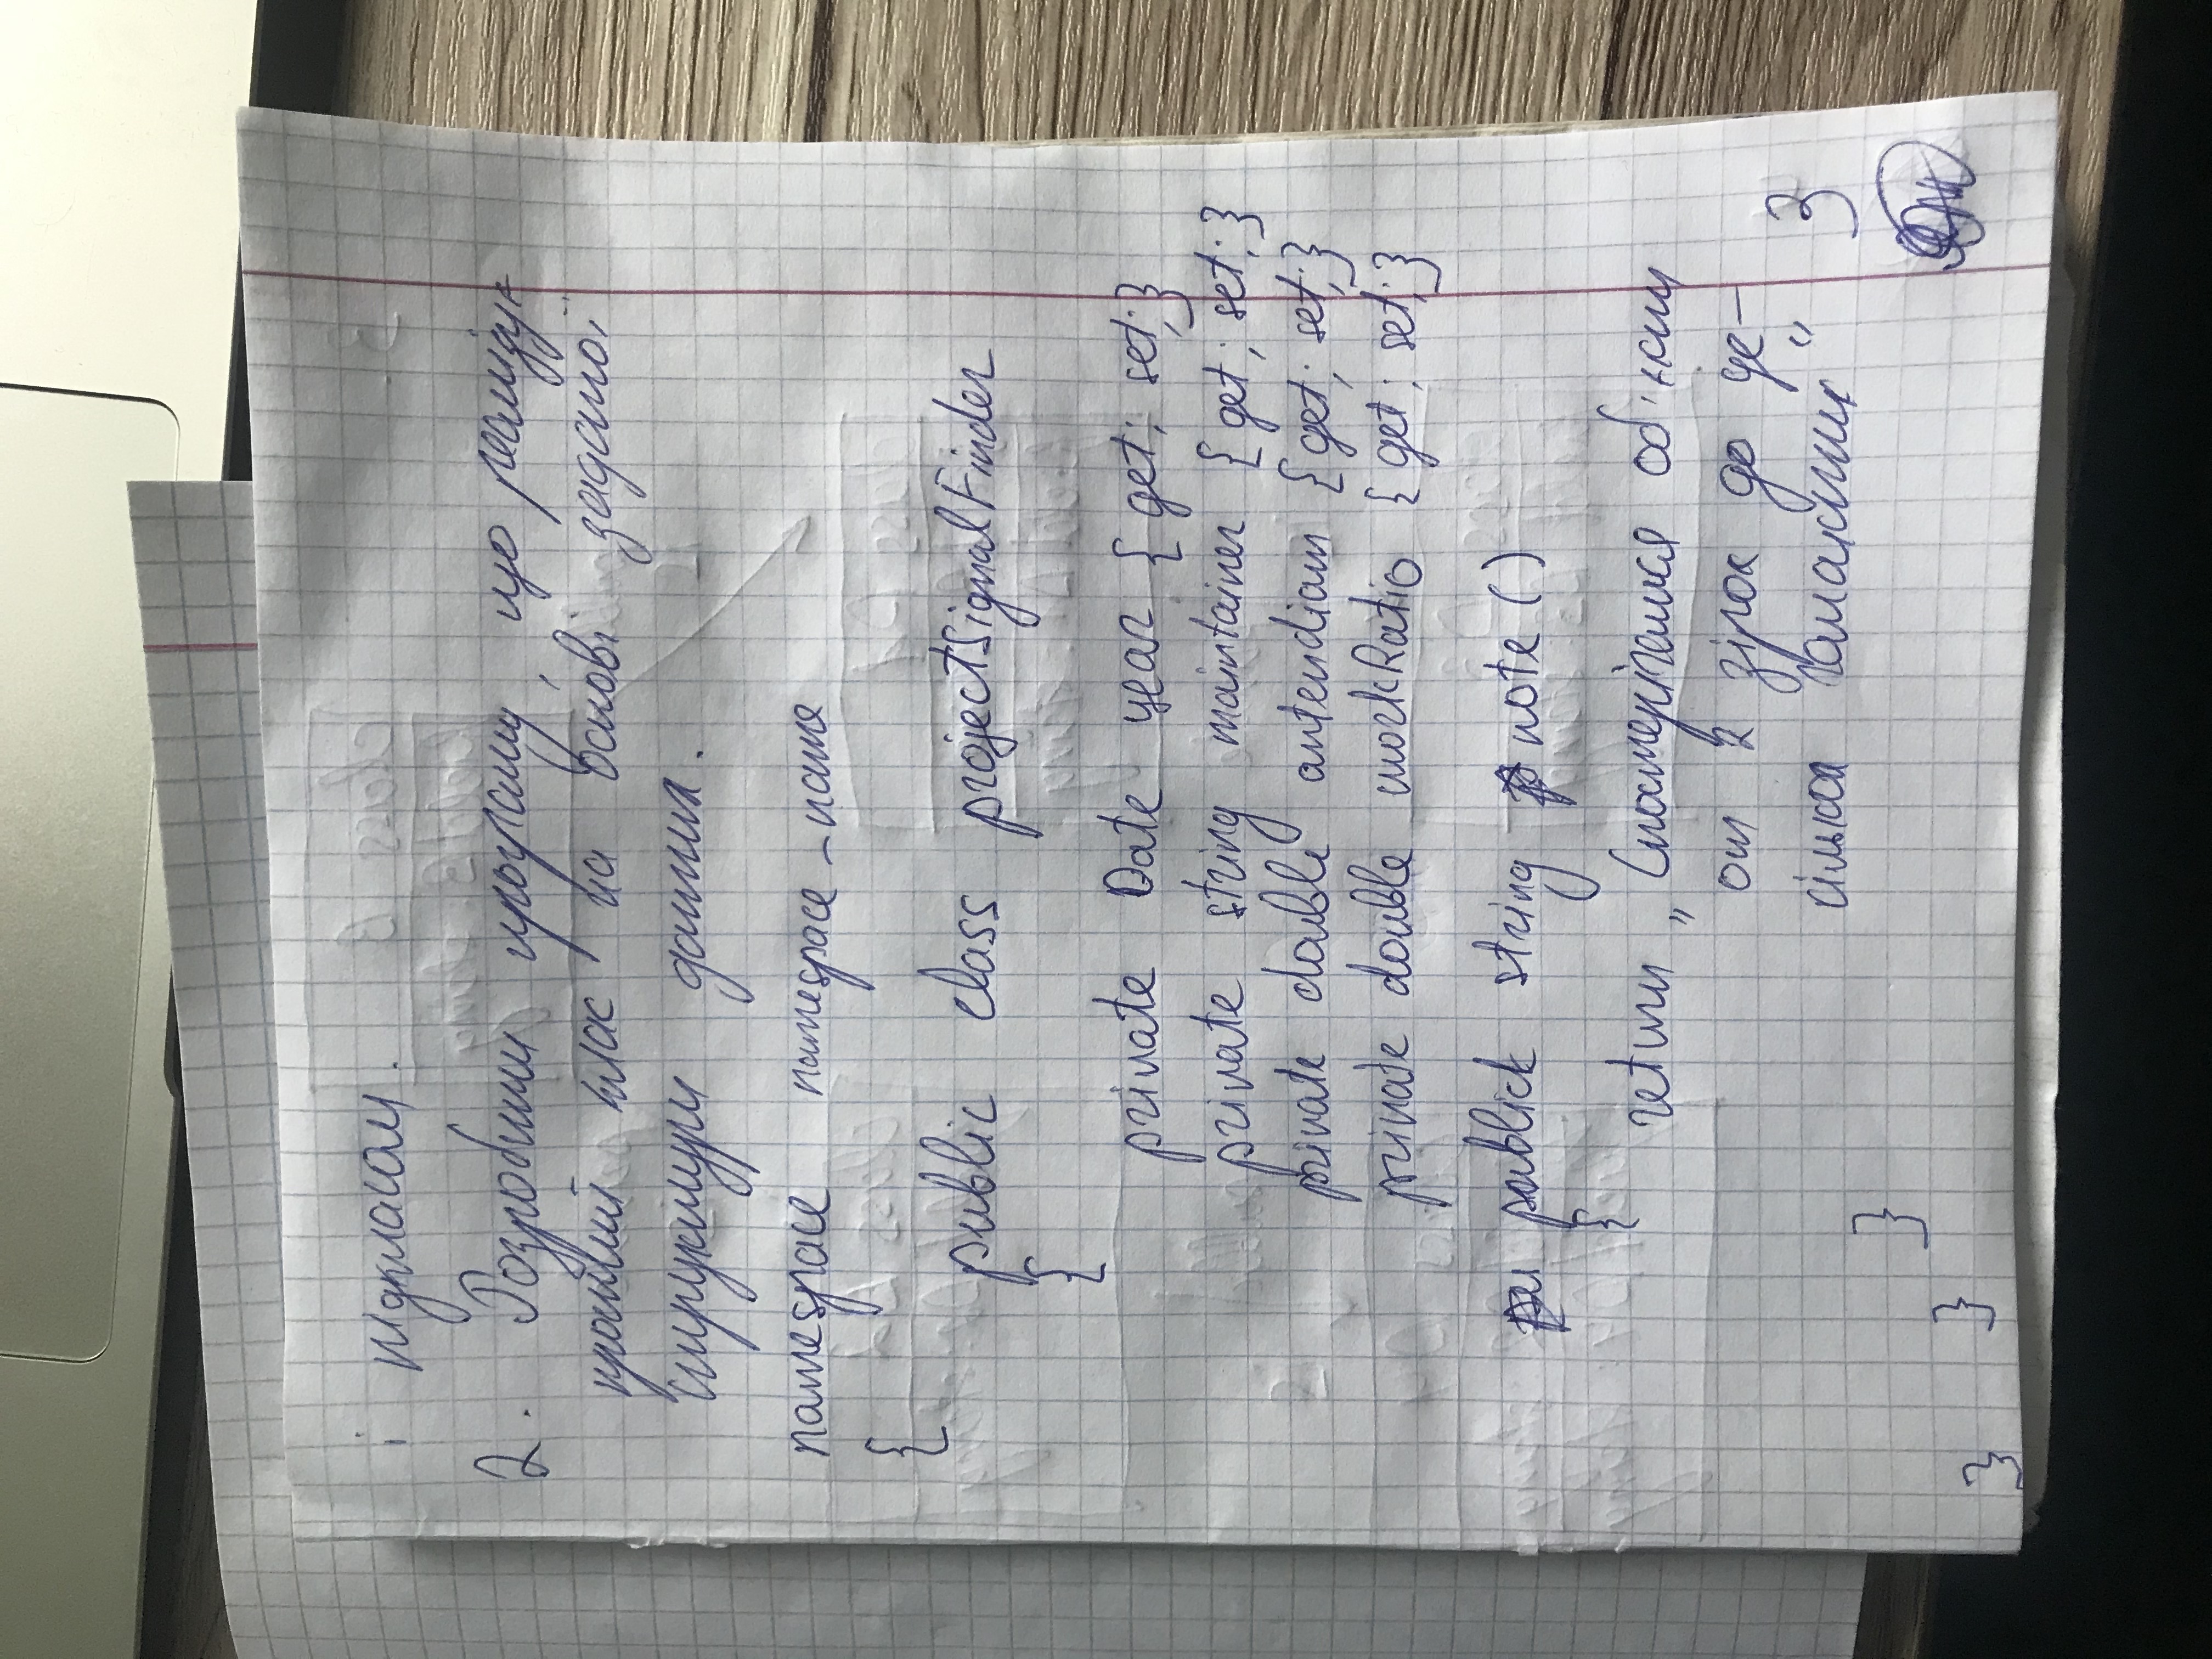 і підкласом.
2. Розробити програму, що реалізує
простий клас на основі заданої
структури даних.
namespace namespace_name
{
public class projectSignalFinder
{
private Date year { get; set; }
private string maintainer { get; set; }
private double antendiam { get; set; }
private double workRatio { get; set; }
publick string note ()
{
return „Спостерігалися об'єкти
от 2 зірок до де-
кількох галактик"
3
}
}
}